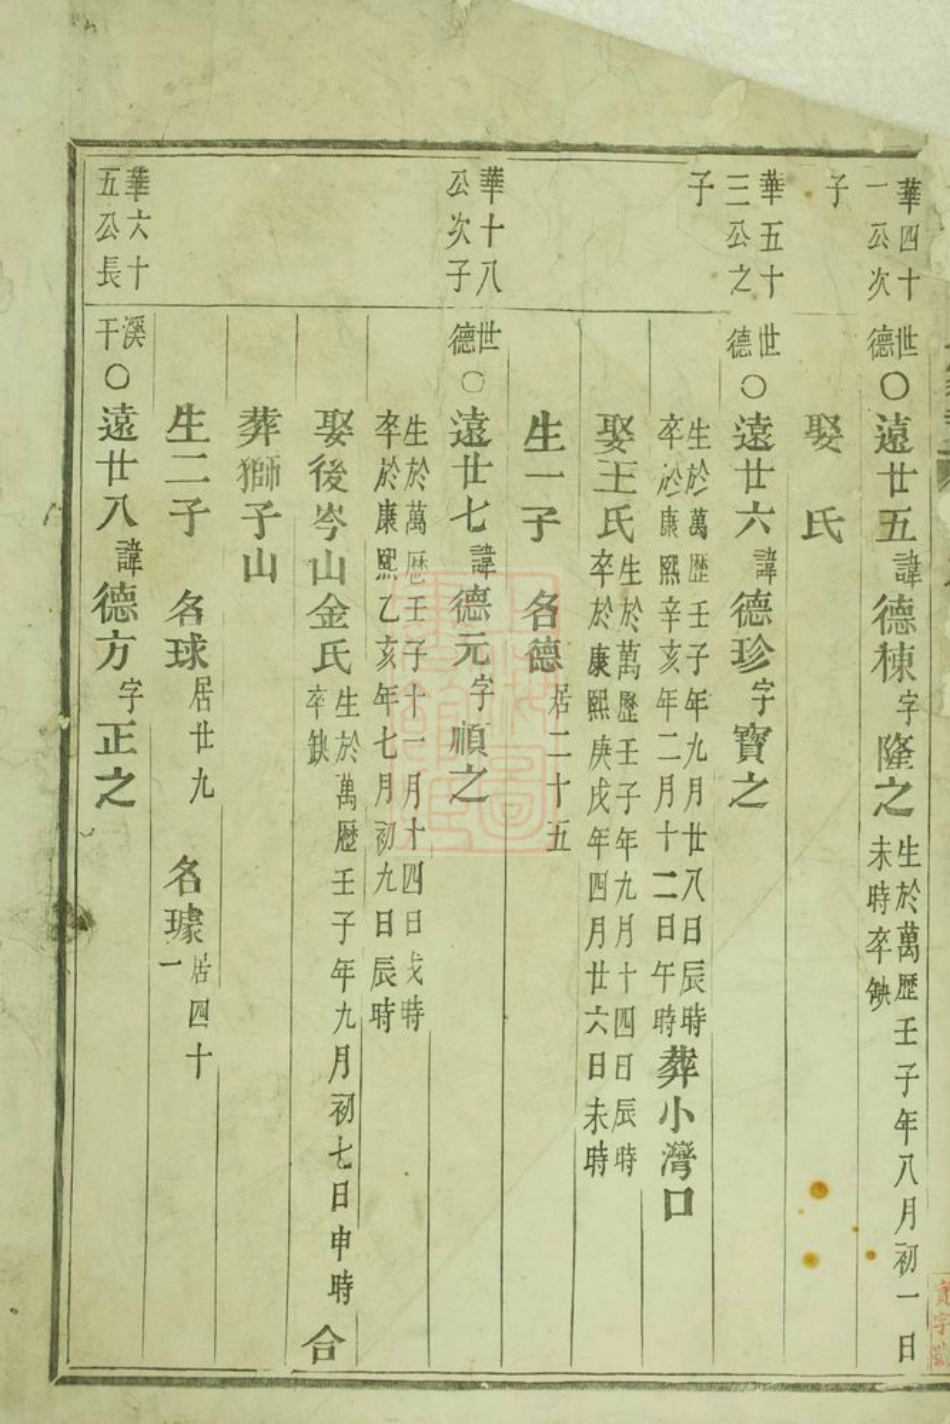 華四十一公次子
世德○遠廿五諱德棟字隆之生於萬歷壬子年八月初一日未時卒缺
娶 氏
華五十三公之子
世德○遠廿六諱德珍字寶之
生於萬歷壬子年九月廿八日辰時卒於康熙辛亥年二月十二日午時葬小灣口
娶王氏生於萬歷壬子年九月十四日辰時卒於康熙庚戌年四月廿六日未時
生一子 名德居二十五
華十八公次子
世德○遠廿七諱德元字順之
生於萬歷壬子十一月十四日戌時卒於康熙乙亥年七月初九日辰時
娶後岑山金氏生於萬歷壬子年九月初七日申時卒缺合
葬獅子山
生二子 名球居廿九 名璩居四十一
華六十五公長
溪干○遠廿八諱德方字正之